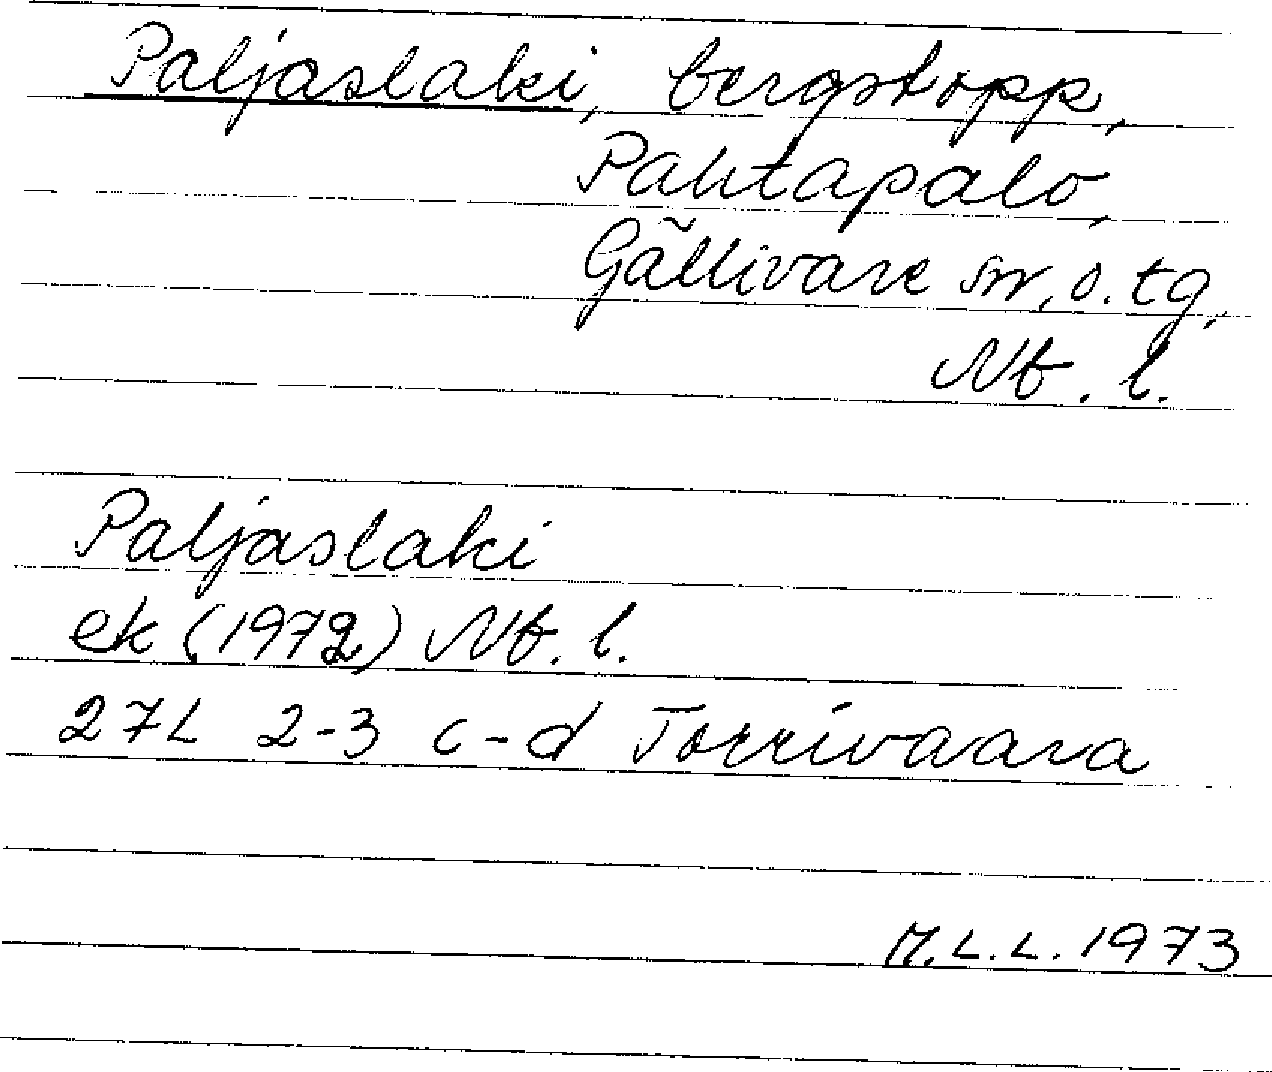 Paljaslaki, bergstopp,
Pahtapalo,
Gällivare sn, o. tg,
Nb. l.
Paljaslaki
ek (1972) Nb. l.
27L 2-3 c-d Torrivaara
M.L.L. 1973